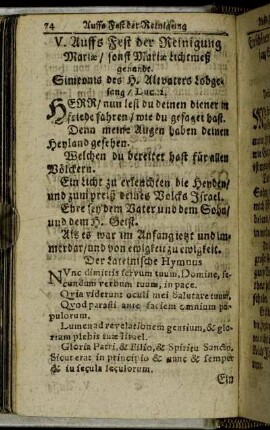 74 Auffs Fest der Reinigung
V. Auffs Fest der Reinigung
Mariæ / sonst Mariæ Lichtmeß
genandt.
Simeonis des H. Altvaters Lobge-
sang / Luc. 2.
HERR / nun lest du deinen diener in
friede fahren / wie du gesaget hast.
Denn meine Augen haben deinen
Heyland gesehen.
Welchen du bereitet hast für allen
Völckern.
Ein liecht zu erleuchten die Heyden /
und zum preiß deines Volcks Israel.
Ehre sey dem Vater und dem Sohn /
und dem H. Geist.
Als es war im Anfang ietzt und im-
merdar / und von ewigkeit zu ewigkeit.
Der Lateinische Hymnus
NVnc dimittis servum tuum, Domine, se-
cundum verbum tuum, in pace.
Qvia viderunt oculi mei Salutare tuum.
Qvod parasti ante faciem omnium po-
pulorum.
Lumen ad revelationem gentium, & glo-
riam plebis tuæ Israel.
Gloria Patri, & Filio, & Spiritui Sancto.
Sicut erat in principio & nunc & semper
& in secula seculorum.
Ein